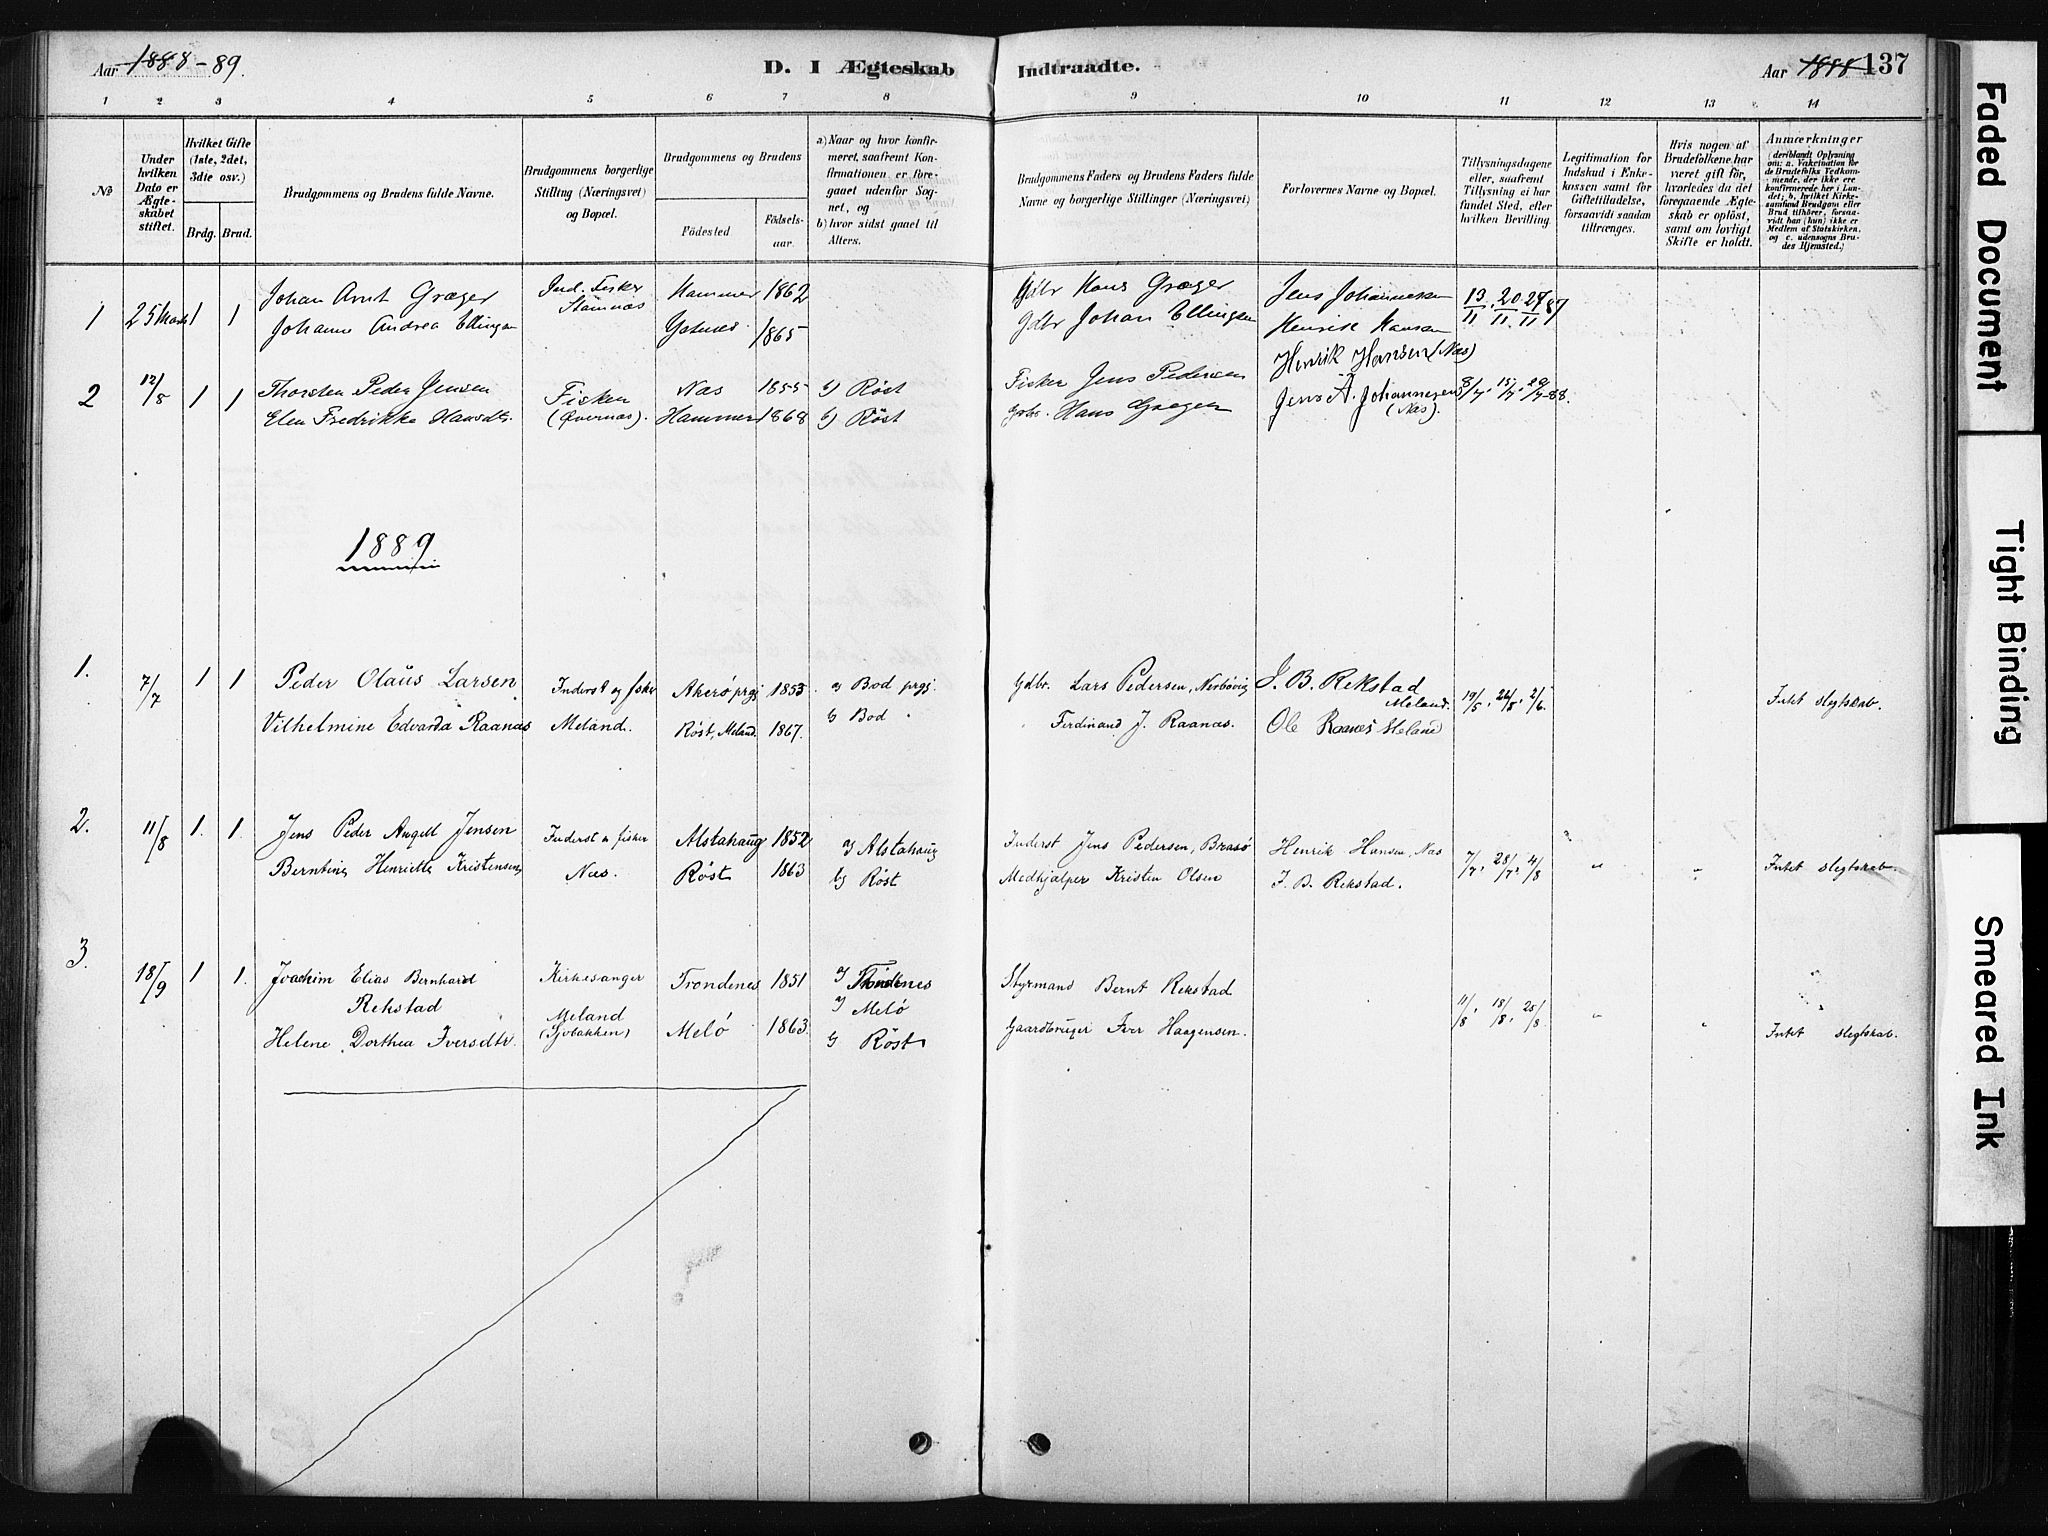 Aar 1888-89.
D. I Ægteskab Indtraadte.
Aar 1888 137
1 2 3 4 5 6 7 8 9 10 11 12 13 14
No
Under hvilken Dato er Ægteskabet stiftet.
Hvilket Gifte (1ste, 2det, 3die osv.)
Brdg. Brud.
Brudgommens og Brudens fulde Navne.
Brudgommens borgerlige Stilling (Næringsvei) og Bopæl.
Brudgommens og Brudens
Födested
Födselsaar.
a) Naar og hvor konfirmeret, saafremt Konfirmationen er foregaaet udenfor Sognet, og
b) hvor sidst gaaet til Alters.
Brudgommens Faders og Brudens Faders fulde Navne og borgerlige Stillinger (Næringsvei)
Forlovernes Navne og Bopæl.
Tillysningsdagene eller, saafremt Tillysning ei har fundet Sted, efter hvilken Bevilling.
Legitimation for Indskud i Enkekassen samt for Giftetilladelse, forsaavidt saadan tiltrænges.
Hvis nogen af Brudefolkene har været gift för, hvorledes da det foregaaende Ægteskab er oplöst, samt om lovligt Skifte er holdt.
Anmærkninger
(deriblandt Oplysning om: a. Vakcination for de Brudefolks Vedkommende, der ikke ere konfirmerede her i Landet; b. hvilket Kirkesamfund Brudgom eller Brud tilhörer, forsaavidt han (hun) ikke er Medlem af Statskirken, og c. udensogns Brudes Hjemsted.)
1 25 Marts 1 1 Johan Arnt Græger Ind. Fisker Hammer 1862 Gdbr Hans Græger Jens Johannesen 13/11. 20/11. 27/11 87
Johanne Andrea Ellingsen Stamnas 1865 Gdbr Johan Ellingsen Henrik Hansen
2 12/8 1 1 Thorsten Peder Jensen Fisker Nas 1855 b) Röst Fisker Jens Pedersen Henrik Hansen (Nas)
Elen Fredrikke Hansdtr. (Övernas). Hammer 1868 b) Röst Gdbr. Hans Græger Jens A. Johannesen (Nas). 8/7. 15/7. 29/7-88.
1889
1. 7/7 1 1 Peder Olaüs Larsen Inderst og fisker Akerö prgj 1853 a) Bod prgj. Gdbr. Lars Pedersen, J. B. Rekstad Meland. 19/5. 26/5. 2/6. Intet slegtskab.
Vilhelmine Edvarda Raanas Meland. Röst, Meland 1867. b) Bod " Ferdinand J. Raanas. Ole Raanes Meland
2. 11/8 1. 1. Jens Peder Angell Jensen Inderst o fisker Alstahaug 1852 a) Alstahaug Inderst Jens Pedersen, Brasö Henrik Hansen, Nas 7/7. 28/7. 4/8 " " Intet slegtskab.
Berntine Henriette Kristensen Nas. Röst 1863 b) Röst Medhjælper Kristen Olsen J. B. Rekstad.
3. 18/9 1 1. Joachim Elias Bernhard Rekstad Kirkesanger Trondenes 1851 a) Trondenes Styrmand Bernt Rekstad 11/8. 18/8. 25/8. " " Intet slegtskab.
Meland (Sjöbakken) a) Melö
Helene Dorthea Iversdtr. Melö 1863. b) Röst Gaardbruger Iver Haagensen.
Faded Document
Tight Binding
Smeared Ink